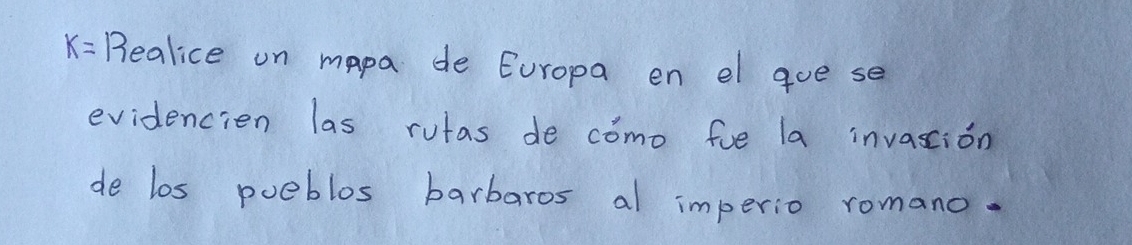 K= Realice un mapa de Europa en el que se
evidencien las rutas de cómo fue la invasión
de los pueblos barbaros al imperio romano.